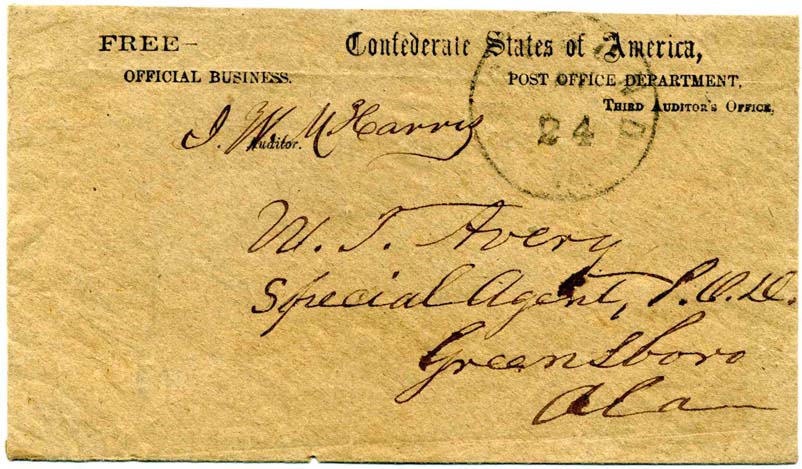 FREE—
Confederate States of America,
OFFICIAL BUSINESS.
POST OFFICE DEPARTMENT,
THIRD AUDITOR'S OFFICE,
24
J. W. M. Harris
Auditor.
W. T. Avery
Special Agent, P.O.D.
Greensboro
Ala